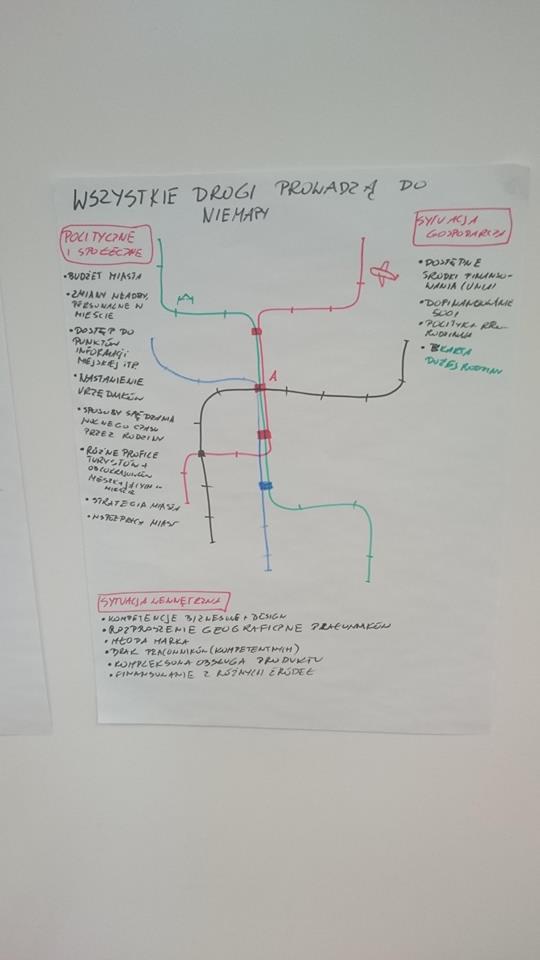 WSZYSTKIE DROGI PROWADZĄ DO
NIEMAPY
POLITYCZNE
I SPOŁECZNE
• BUDŻET MIASTA
• ZMIANY WŁADZY,
PERSONALNE W
MIEŚCIE
• DOSTĘP DO
PUNKTÓW
INFORMACJI
MIEJSKIEJ ITP.
• NASTAWIENIE
URZĘDNIKÓW
• SPOSOBY SPĘDZANIA
WOLNEGO CZASU
PRZEZ RODZINY
• RÓŻNE PROFILE
TURYSTÓW +
OBCOKRAJOWCÓW
MIESZKAJĄCYCH W
MIEŚCIE
• STRATEGIA MIASTA
MIAST
A
SYTUACJA
GOSPODARCZA
• DOSTĘPNE
ŚRODKI FINANSO-
WANIA (UNIJ)
• DOFINANSOWANIE
500+
• POLITYKA PRO-
RODZINNA
• KARTA
DUŻEJ RODZINY
SYTUACJA WEWNĘTRZNA
• KOMPETENCJE BIZNESOWE + DESIGN
• ROZPROSZENIE GEOGRAFICZNE PRACOWNIKÓW
• MŁODA MARKA
• BRAK PRACOWNIKÓW (KOMPETENTNYCH)
• KOMPLEKSOWA OBSŁUGA PRODUKTU
• FINANSOWANIE Z RÓŻNYCH ŹRÓDEŁ